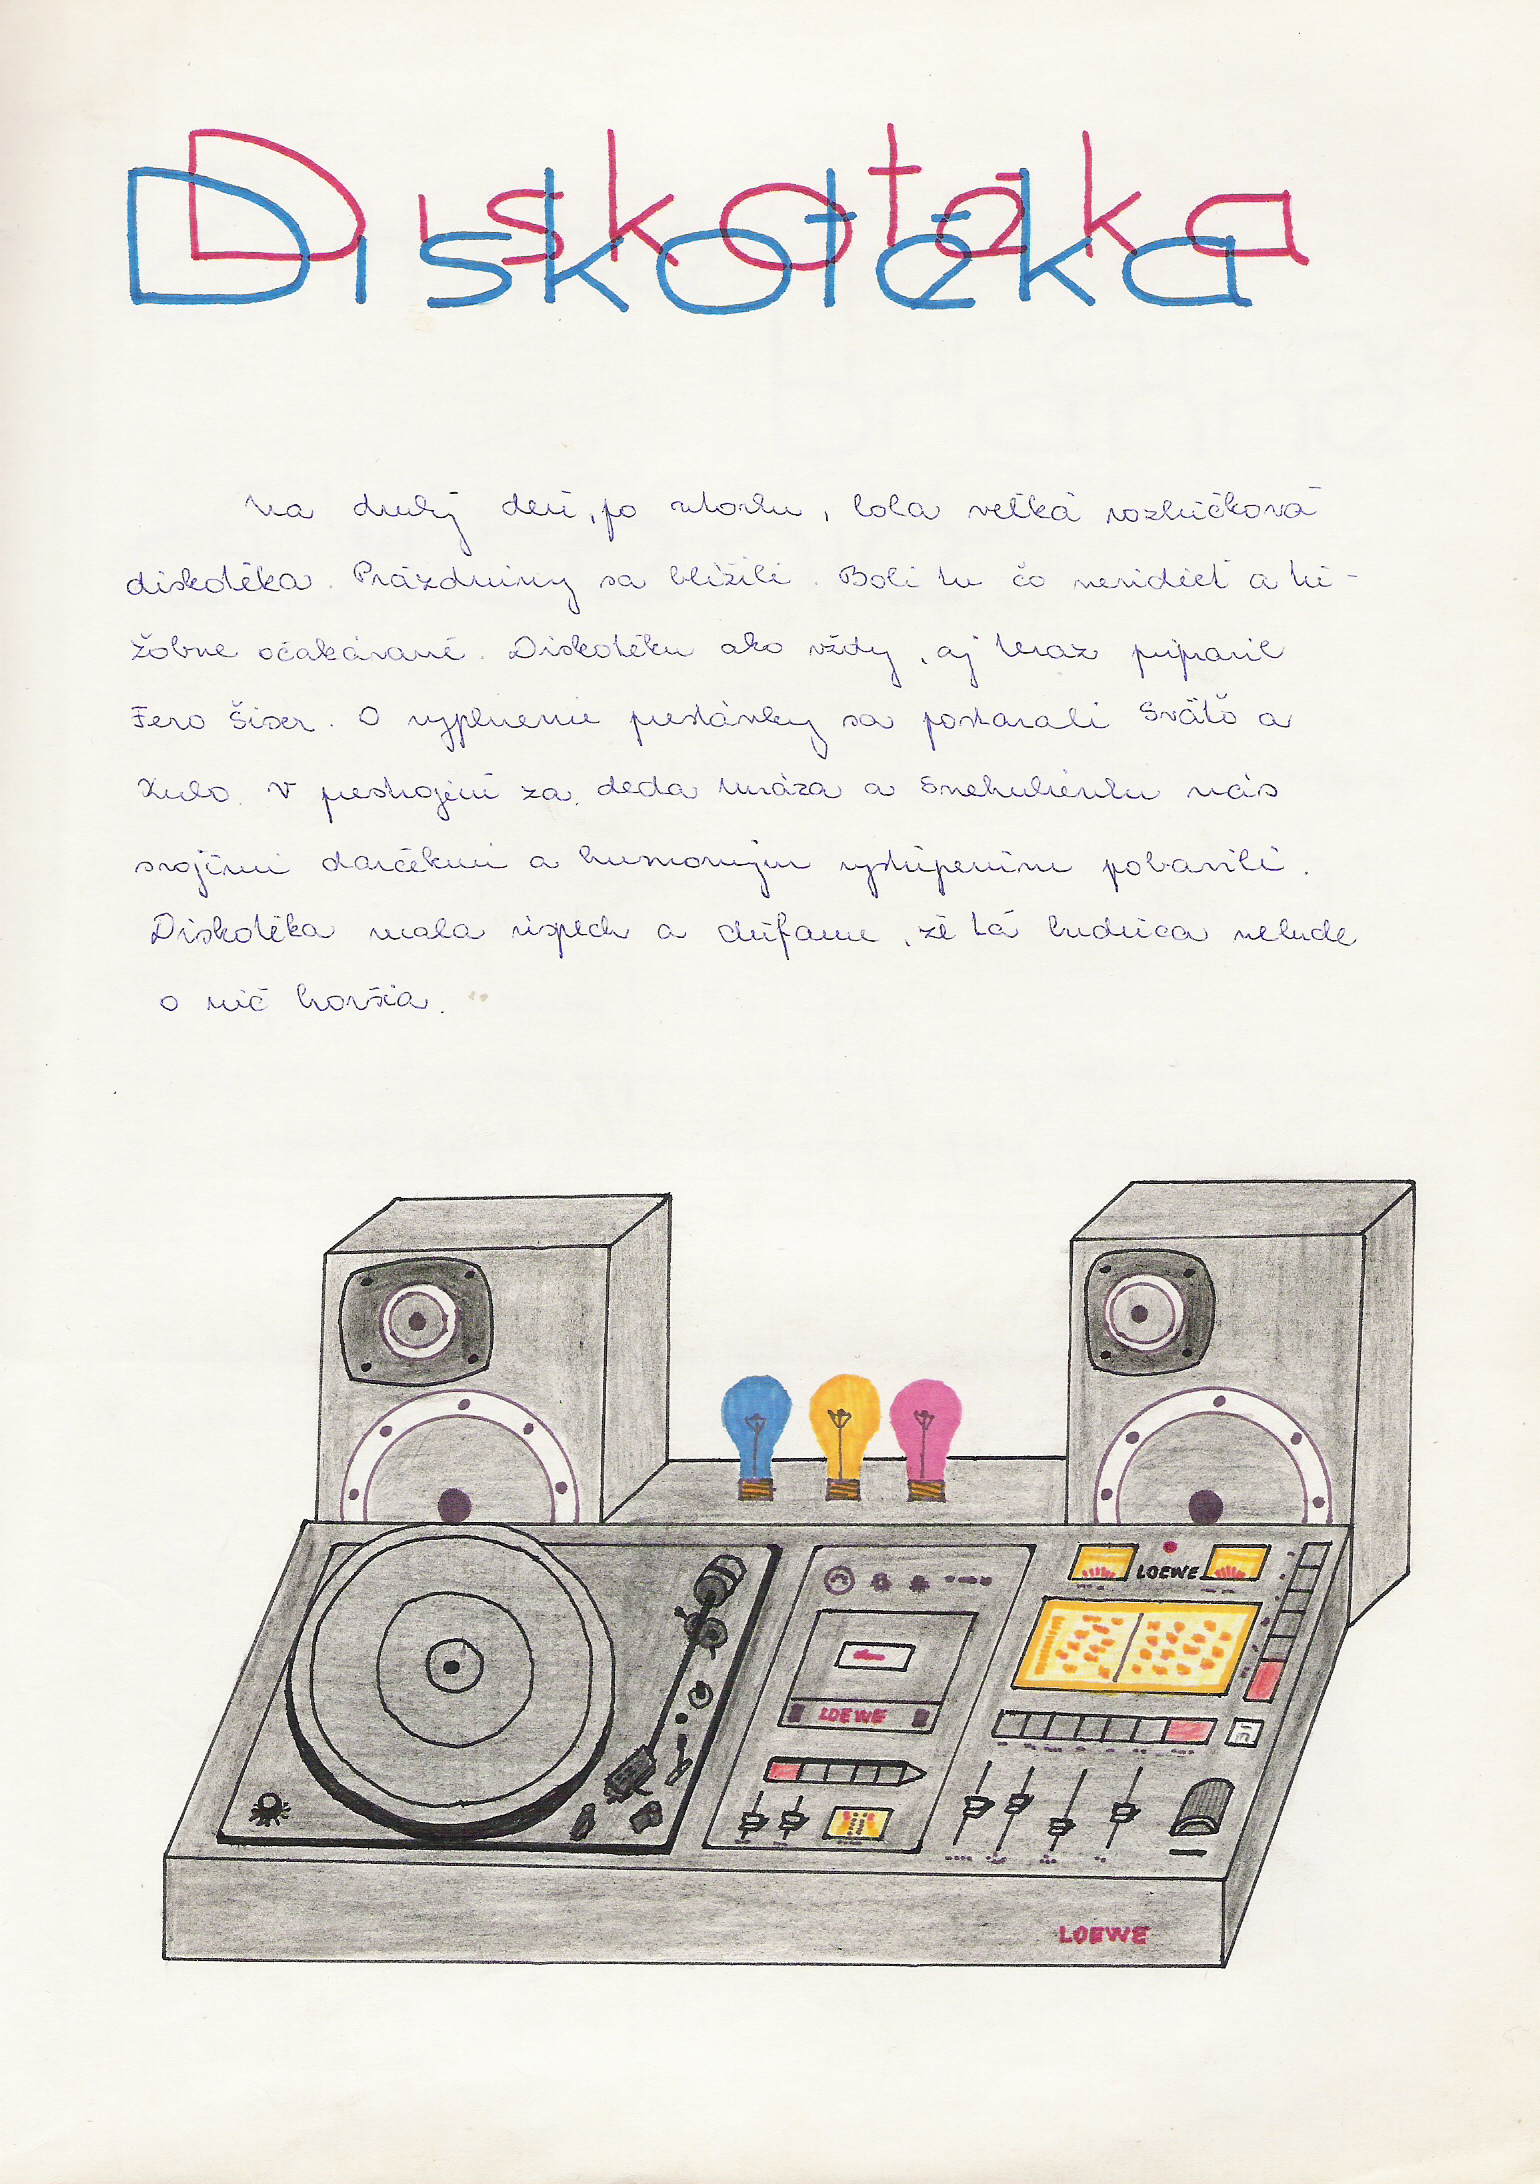 Diskotéka
Na druhý deň, po utorku, bola veľká rozlúčková
diskotéka. Prázdniny sa blížili. Boli tu čo nevidieť a tú-
žobne očakávané. Diskotéku ako vždy, aj teraz pripravil
Fero Šixer. O vyplnenie prestávky sa postarali Sväťo a
V prestrojení za deda mráza a Snehulienku nás
svojimi darčekmi a humorným vystúpením pobavili.
Diskotéka mala úspech a dúfame, že tá budúca nebude
o nič horšia.
LOEWE
LOEWE
LOEWE